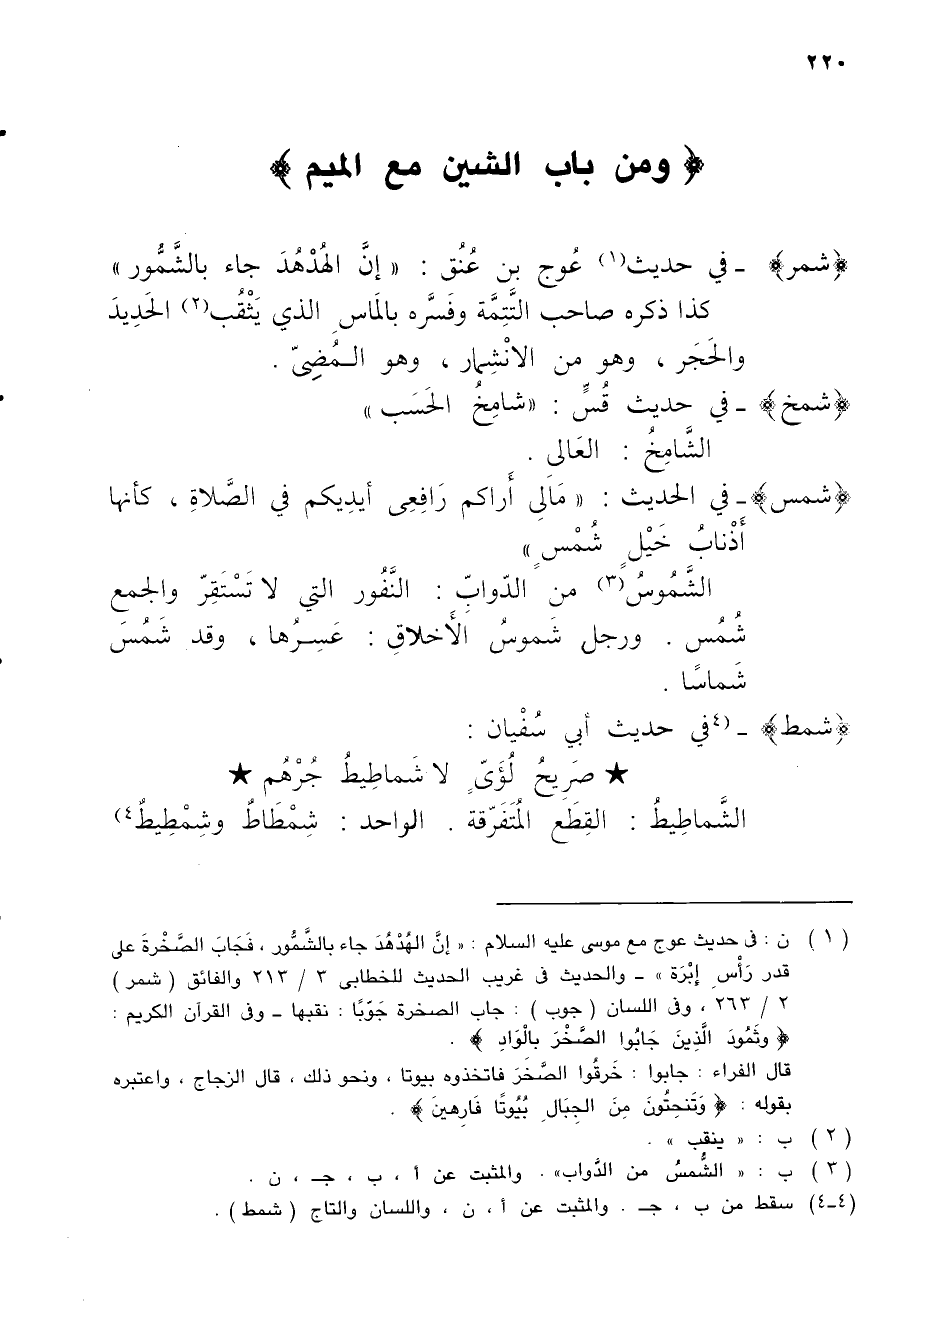 ٢٢٠
﴿ ومن باب الشين مع الميم ﴾
﴿شمر﴾ ـ في حديث(١) عُوج بن عُنُق : « إنَّ الهُدْهُدَ جاء بالشَّمُّور »
كذا ذكره صاحب التَّتِمَّة وفَسَّره بالمَاس الذي يَثْقُب(٢) الحَدِيدَ
والحَجَر ، وهو من الانْشِمار ، وهو المُضِيّ .
﴿شمخ﴾ ـ في حديث قُسٍّ : «شامِخُ الحَسَب »
الشَّامِخُ : العَالى .
﴿شمس﴾ـ في الحديث : « مَالى أَراكم رَافِعِى أيدِيكم في الصَّلاةِ ، كأنها
أَذْنابُ خَيْلٍ شُمْسٍ »
الشَّمُوسُ(٣) من الدّوابّ : النَّفُور التي لا تَسْتَقِرّ والجمع
شُمُس . ورجل شَموسُ الأَخلاقِ : عَسِرُها ، وقد شَمُسَ
شَماسًا .
﴿شمط﴾ ـ (٤في حديث أبي سُفْيان :
★ صَرِيحُ لُؤَىٍّ لا شَماطِيطُ جُرْهُم ★
الشَّماطِيطُ : القِطَع المُتَفَرّقة . الواحد : شِمْطَاطٌ وشِمْطِيطٌ٤)
(١) ن : فى حديث عوج مع موسى عليه السلام : « إنَّ الهُدْهُدَ جاء بالشَّمُّور ، فَجَابَ الصَّخْرةَ على
قدر رَأْس إبْرَة » ـ والحديث فى غريب الحديث للخطابى ٣ / ٢١٣ والفائق ( شمر )
٢ / ٢٦٣ ، وفى اللسان ( جوب ) : جاب الصخرة جَوْبًا : نقبها ـ وفى القرآن الكريم :
﴿ وثَمُودَ الَّذِينَ جَابُوا الصَّخْرَ بِالْوَادِ ﴾ .
قال الفراء : جابوا : خَرقُوا الصَّخَرَ فاتخذوه بيوتا ، ونحو ذلك ، قال الزجاج ، واعتبره
بقوله : ﴿ وَتَنحِتُونَ مِنَ الجِبَالِ بُيُوتًا فَارِهِينَ ﴾ .
(٢) ب : « ينقب » .
(٣) ب : « الشُّمسُ من الدَّواب» . والمثبت عن أ ، ب ، جـ ، ن .
(٤ـ٤) سقط من ب ، جـ . والمثبت عن أ ، ن ، واللسان والتاج ( شمط ) .